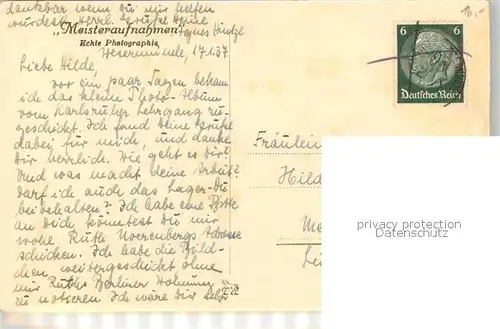 dankbar wenn Du mir helfen
würdest. Herzl. Grüße Deine
Agnes Hintze
„Meisteraufnahmen"
Echte Photographie
Wesermünde, 17.1.37.
Liebe Hilde,
vor ein paar Tagen bekam
ich das kleine Photo-Album
vom Karlsruher Lehrgang zu-
geschickt. Ich fand Deine Grüße
dabei für mich, und danke
Dir herzlich. Wie geht es Dir?
Und was macht Deine Arbeit?
Darf ich auch das Lager-Du
beibehalten? Ich habe eine Bitte
an Dich, könntest Du mir
wohl Ruth Noerenbergs Adresse
schicken. Ich habe die Bild-
chen weitergeschickt ohne
mir Ruths Berliner Wohnung
zu notieren. Ich wäre Dir sehr
10,-
6 6
Deutsches Reich
Fräulein
Hild
privacy protection
Datenschutz